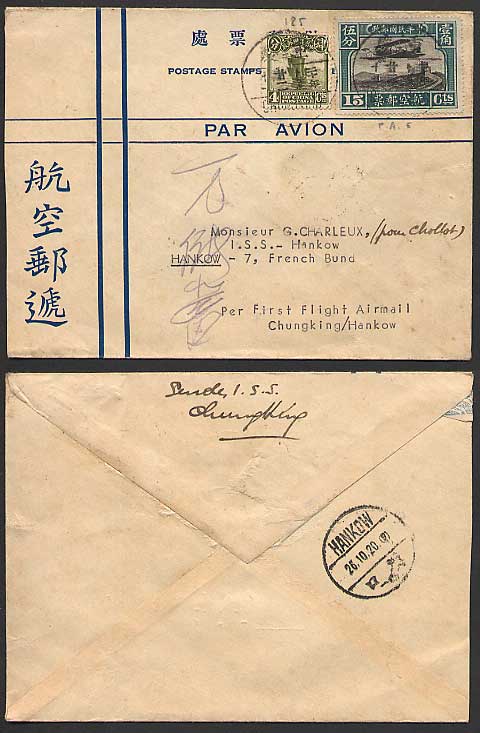 185
票處
POSTAGE STAMPS
4 Cts
REPUBLIC OF CHINA
POSTAGE
壹角
伍分
中華民國郵政
15 Cts
航空郵票
PAR AVION
P.A.S
航空郵遞
Monsieur G.CHARLEUX, (pour Chollot)
I.S.S.- Hankow
HANKOW - 7, French Bund
Per First Flight Airmail
Chungking/Hankow
Sender I.S.S.
Chungking
HANKOW
26.10.20
口